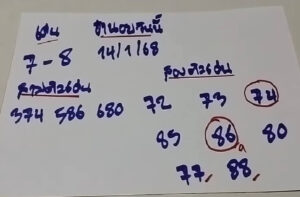 เด่น ฮานอยวันนี้
7-8 14/1/68
สามตัวเด่น สองตัวเด่น
374 586 680 72 73 74
85 86 80
77 88